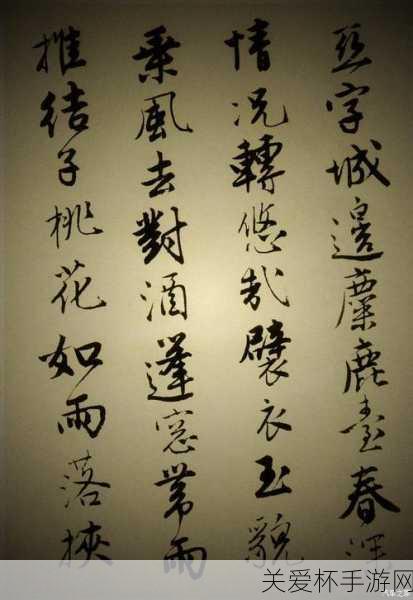 亞字城邊麋鹿臺春深
情況轉悠哉襞衣玉貌
乘風去對酒蓬窓帶雨
推結子桃花如雨落挾
关爱杯手游网